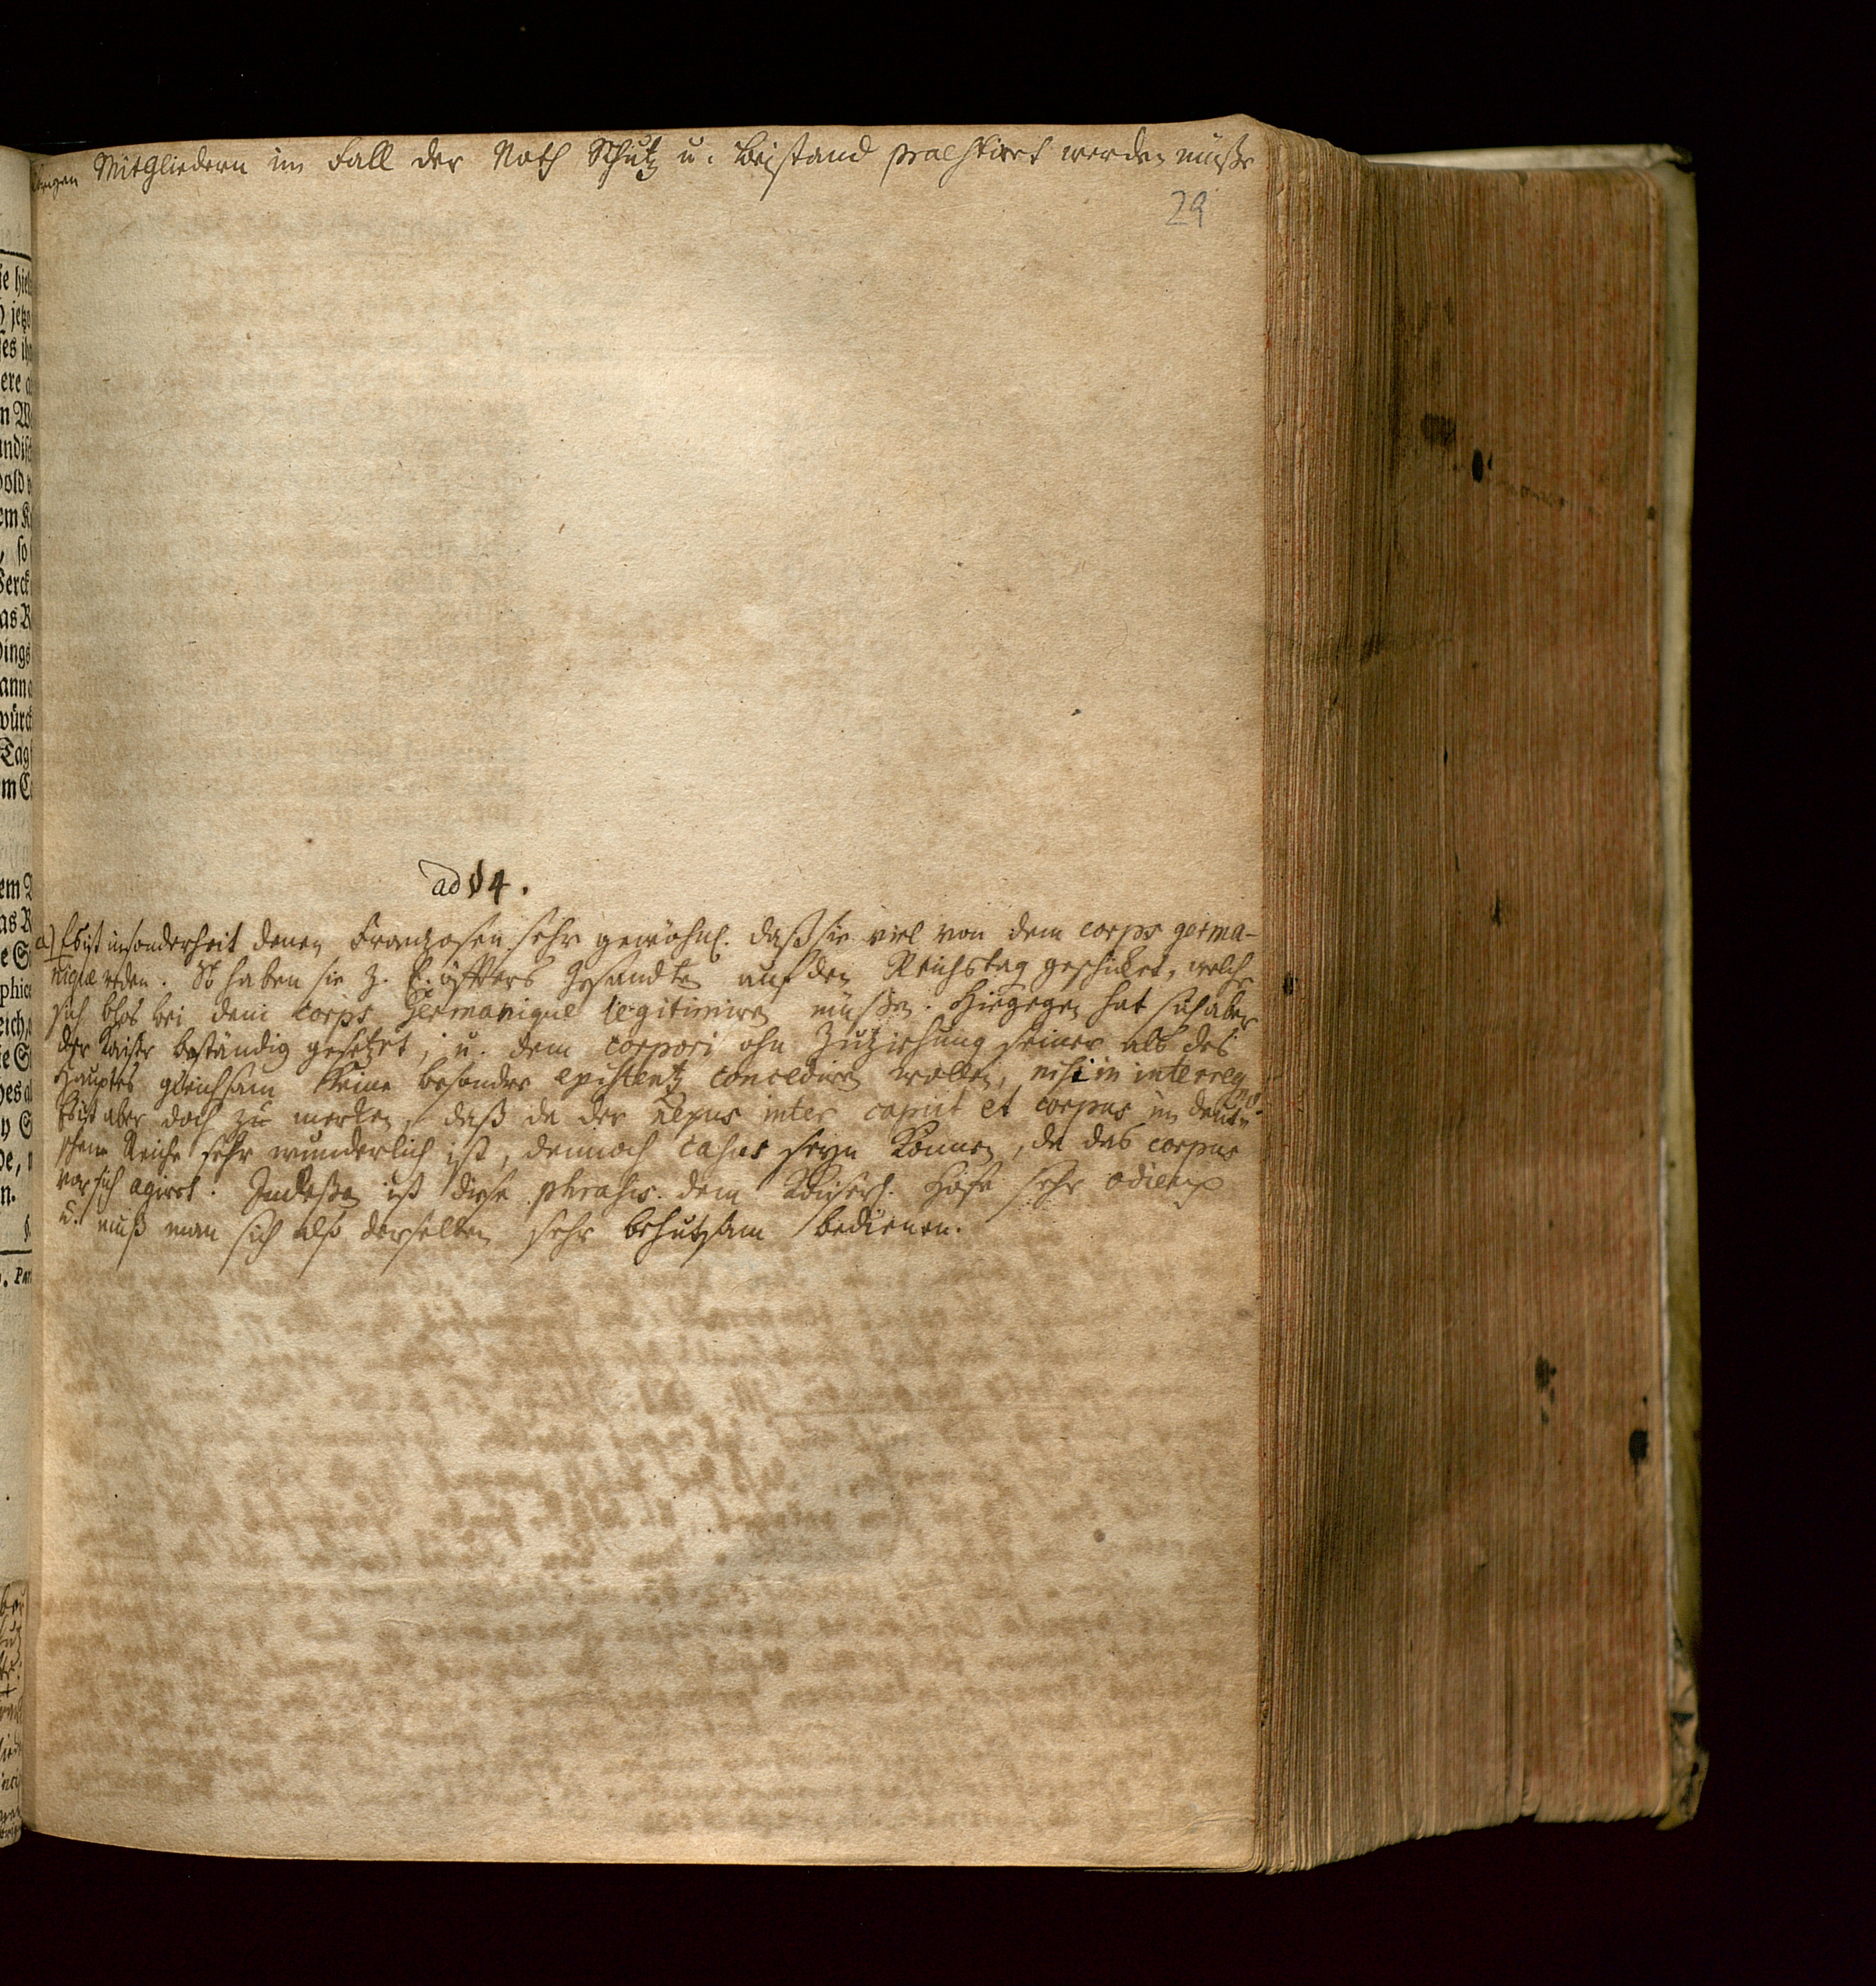 übrigen Mitgliedern im Fall der Noth Schutz u. Beistand praestiret werden müße
29
ad § 4.
a) Es ist insonderheit denen Franzosen sehr gewöhnl. daß sie viel von dem corps germa-
nique reden. So haben sie z. E. öffters Gesandte auf den Reichstag geschicket, welche
sich blos bei dem Corps Germanique legitimiren müßen. Hiegegen hat sich aber
der Kaiser beständig gesetzet, u. dem corpori ohn Zuziehung seiner als des
Hauptes gleichsam keine besondre existentz concediren wollen, nisi in interregno.
Es ist aber doch zu merken, daß da der nexus inter caput et corpus im deut-
schen Reiche sehr wunderlich ist, dennoch casus seyn können, da das corpus
vor sich agiret. Indeßen ist diese phrasis dem Kaiserl. Hofe sehr odieux
u. muß man sich also derselben sehr behutsam bedienen.